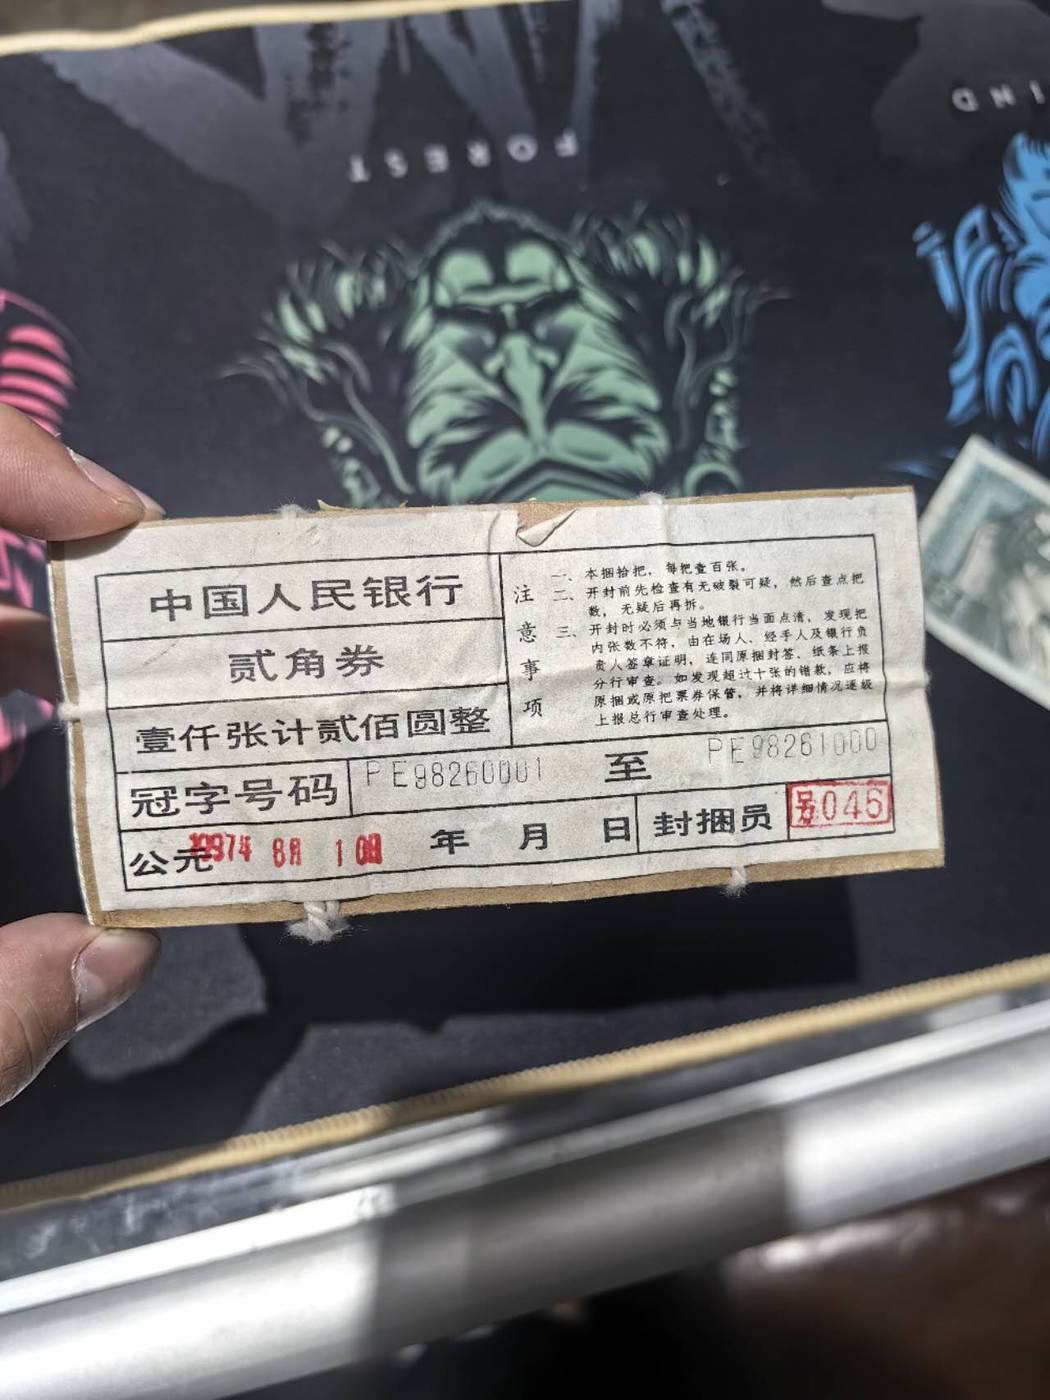 FOREST
IND
中国人民银行
贰角券
壹仟张计贰佰圆整
注意事项
一、本捆拾把,每把壹百张。
二、开封前先检查有无破裂可疑,然后查点把
数,无疑后再拆。
三、开封时必须与当地银行当面点清,发现把
内张数不符,由在场人、经手人及银行负
责人签章证明,连同原捆封签、纸条上报
分行审查。如发现超过十张的错款,应将
原捆或原把票券保管,并将详细情况逐级
上报总行审查处理。
冠字号码 PE98260001 至 PE98261000
公元 1997年 8月 10日 年 月 日 封捆员 号046